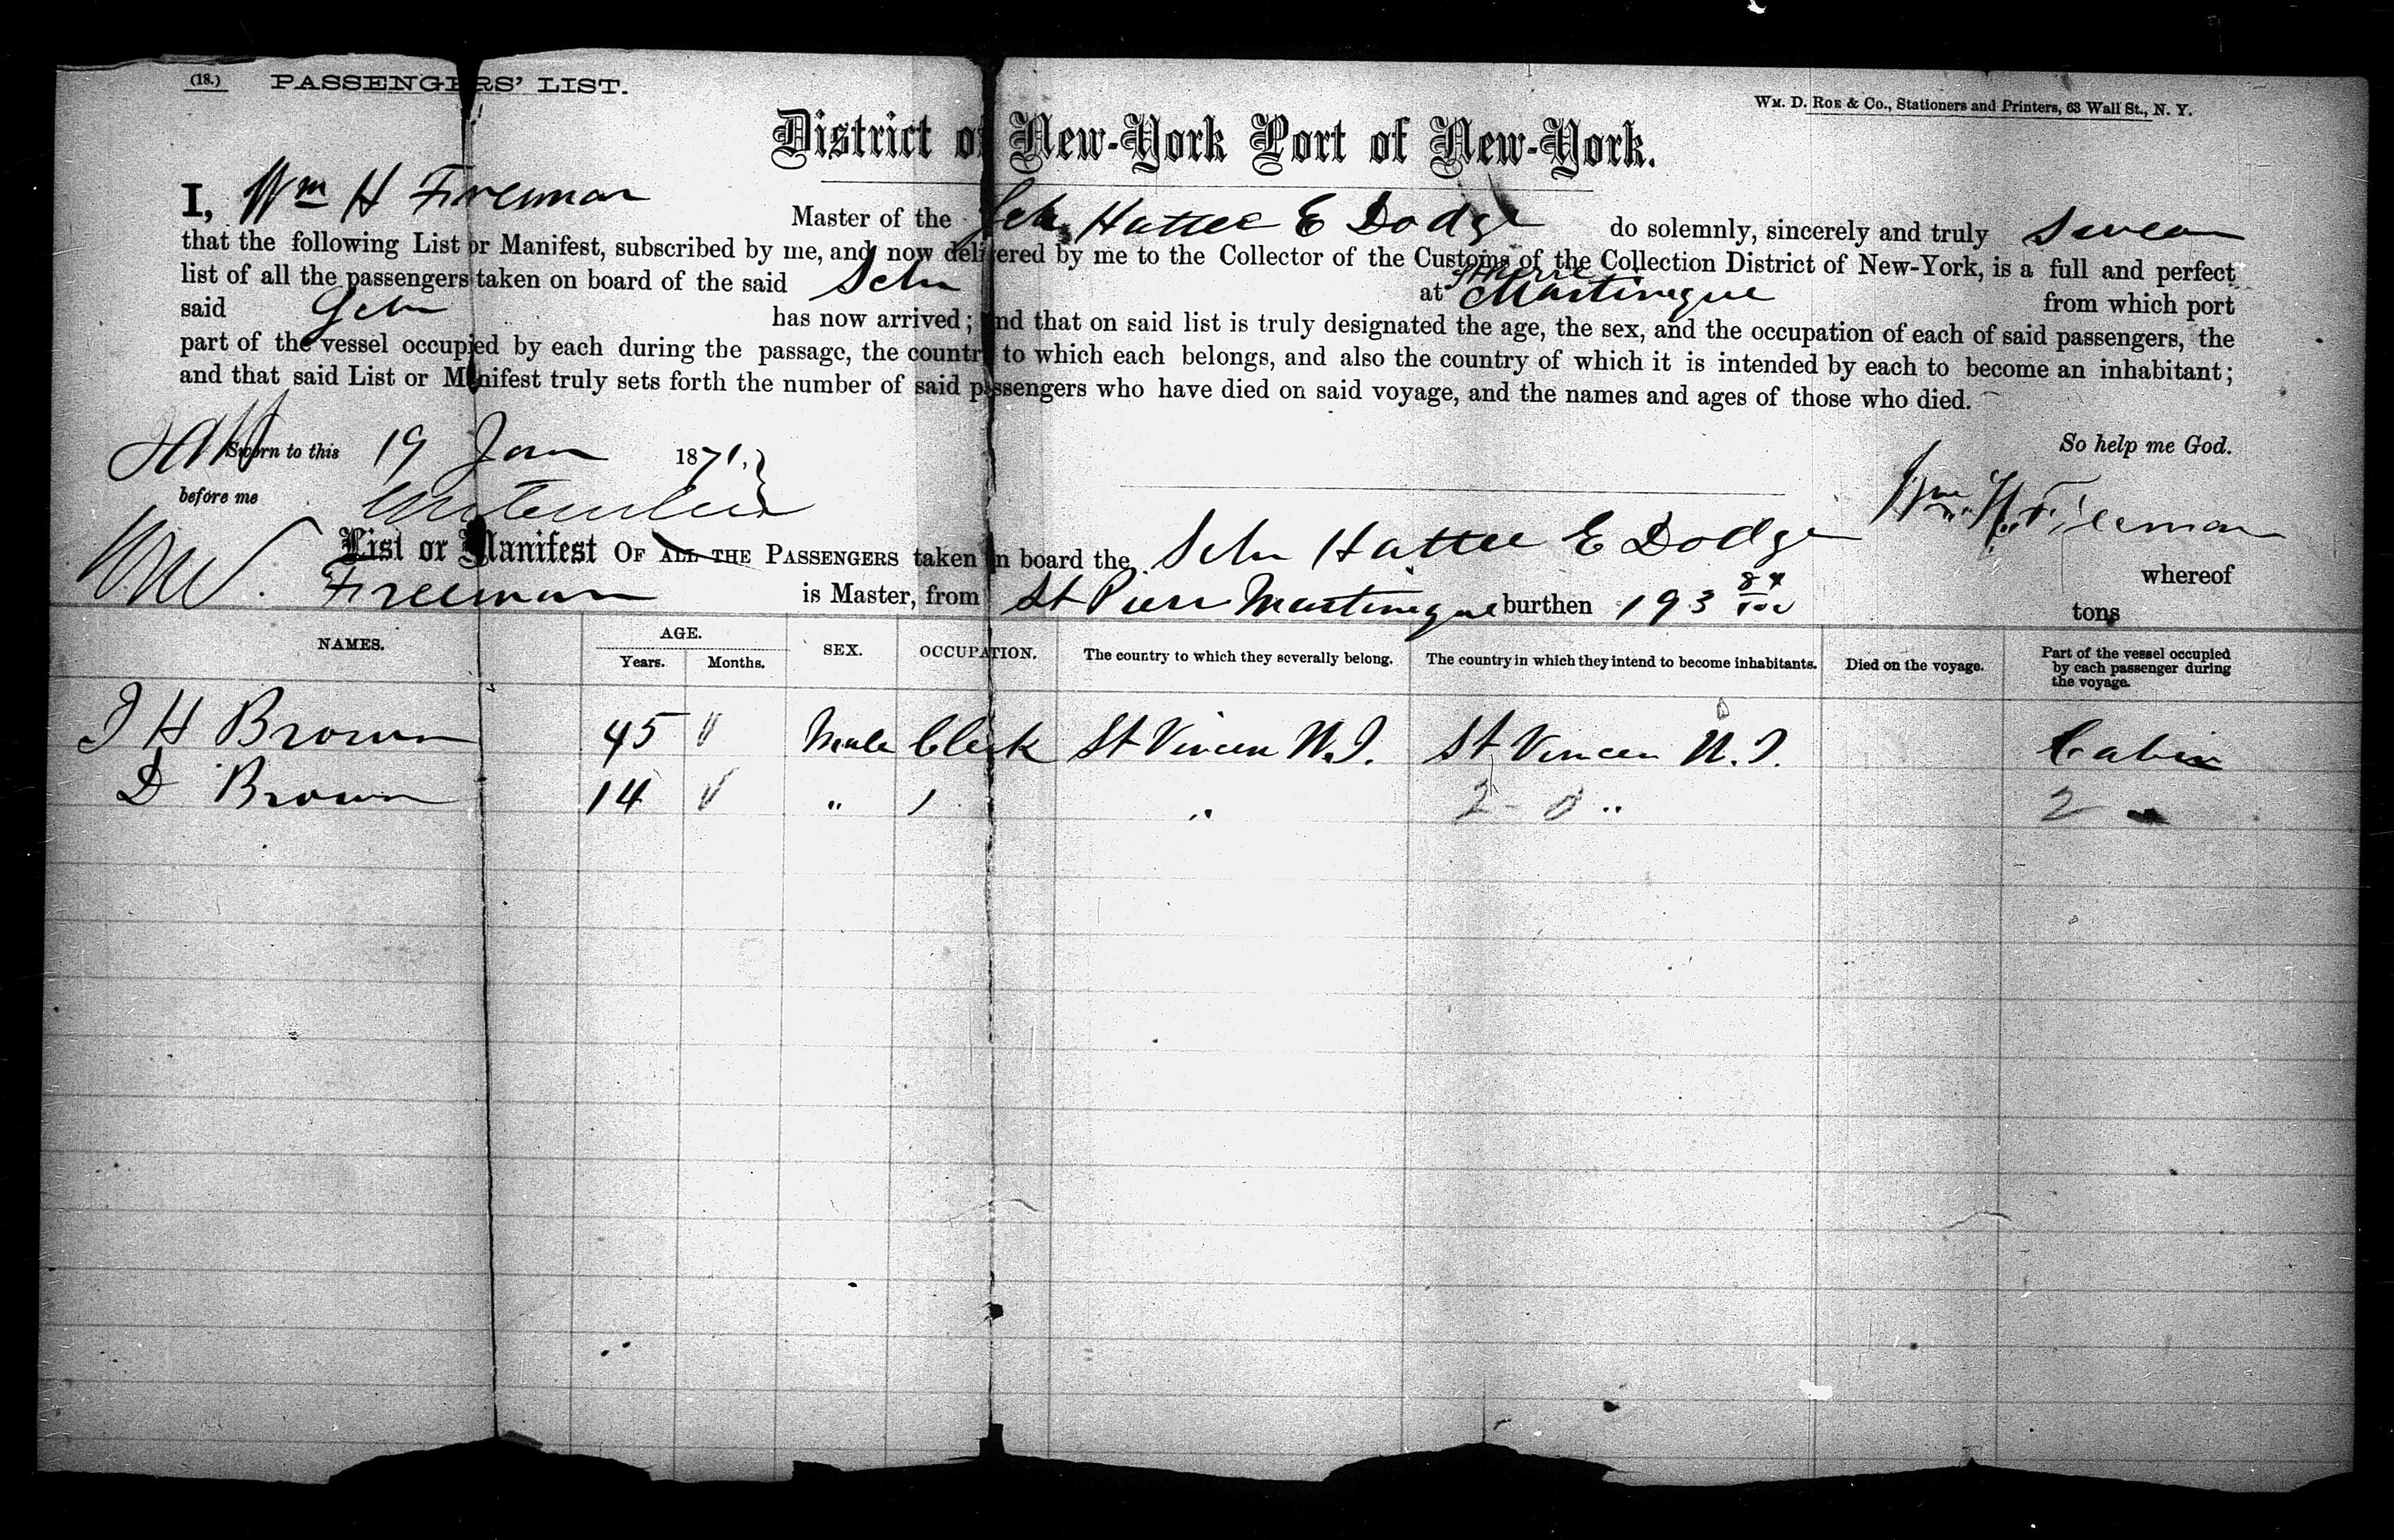 (18.) PASSENGERS' LIST.
Wm. D. Roe & Co., Stationers and Printers, 63 Wall St., N. Y.
District of New-York Port of New-York.
I, Wm H Freeman Master of the Schr Hattie E Dodge do solemnly, sincerely and truly swear
that the following List or Manifest, subscribed by me, and now delivered by me to the Collector of the Customs of the Collection District of New-York, is a full and perfect
list of all the passengers taken on board of the said Schr at St Pierre Martinique from which port
said Schr has now arrived; and that on said list is truly designated the age, the sex, and the occupation of each of said passengers, the
part of the vessel occupied by each during the passage, the country to which each belongs, and also the country of which it is intended by each to become an inhabitant;
and that said List or Manifest truly sets forth the number of said passengers who have died on said voyage, and the names and ages of those who died.
So help me God.
Sworn to this 19 Jan 1871,
before me
Wm H Freeman
List or Manifest OF ALL THE PASSENGERS taken on board the Schr Hattie E Dodge whereof
Freeman is Master, from St Pierr Martinique burthen 193 84/100 tons
NAMES. AGE. Years. Months. SEX. OCCUPATION. The country to which they severally belong. The country in which they intend to become inhabitants. Died on the voyage. Part of the vessel occupied by each passenger during the voyage.
J H Brown 45 Male Clerk St Vincen W.I. St Vincen W.I. Cabin
D Brown 14 " " "